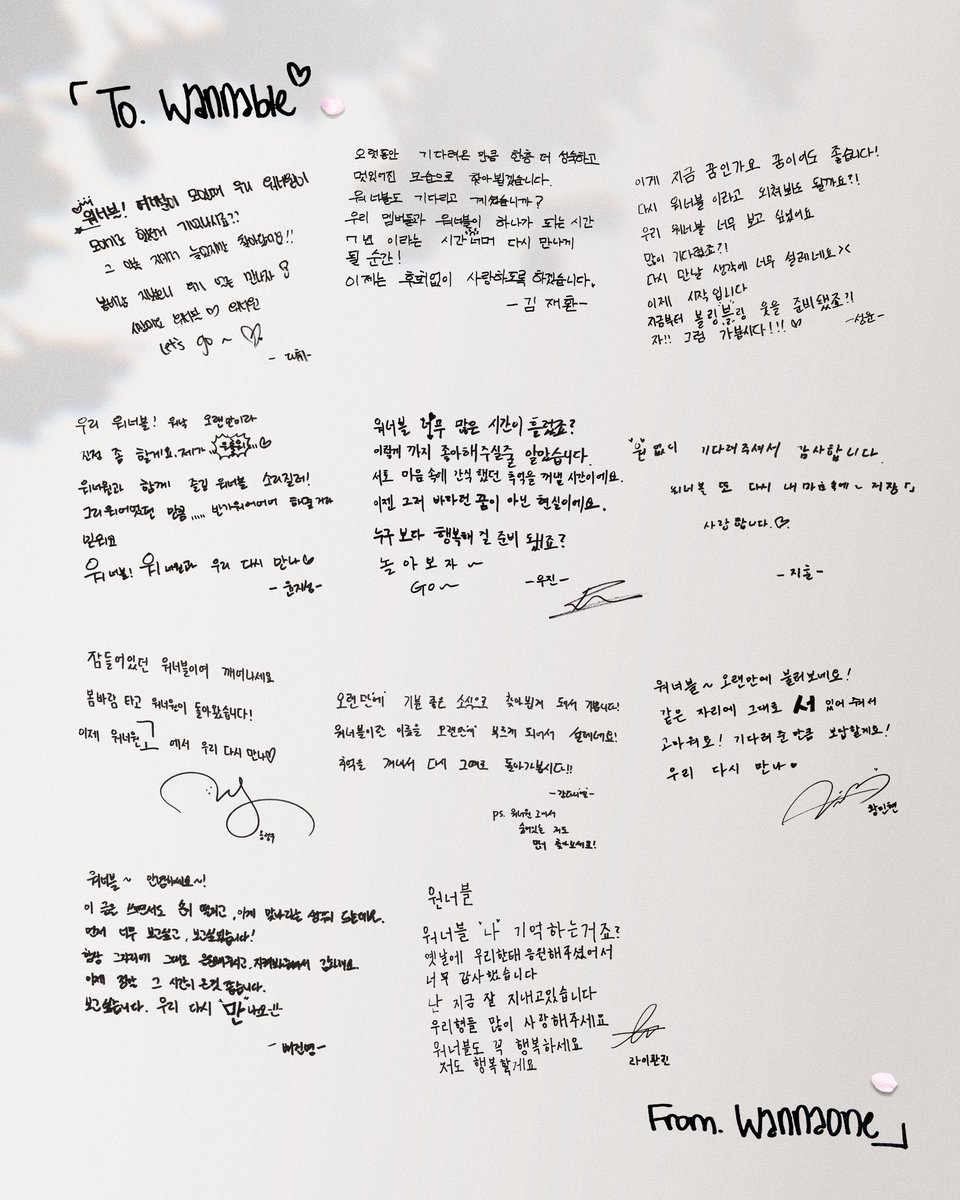 「To. Wannable♡
워너블!
Let's go~ ♡
-대휘-
오랫동안 기다려온 만큼 한층 더 성숙하고
멋있어진 모습으로 찾아뵙겠습니다.
워너블도 기다리고 계셨습니까?
우리 멤버들과 워너블이 하나가 되는 시간
7년 이라는 시간 너머 다시 만나게
될 순간!
이제는 후회없이 사랑하도록 하겠습니다.
-김재환-
이게 지금 꿈인가요 꿈이어도 좋습니다!
다시 워너블이라고 외쳐봐도 될까요?!
우리 워너블 너무 보고 싶었어요
많이 기다렸죠?!
다시 만날 생각에 너무 설레네요><
이제 시작입니다
지금부터 볼링블링 웃을 준비됐죠?!
자!! 그럼 가봅시다!!!♡
-성운-
우리 워너블! 워낙 오랜만이라
진정 좀 할게요. 제가
워너원과 함께 즐길 워너블 소리질러!
믿워요
워너블! 워너원과 우리 다시 만나♡
-윤지성-
워너블 너무 많은 시간이 흘렀죠?
이렇게 까지 좋아해주실줄 알았습니다.
서로 마음 속에 간직했던 추억을 꺼낼 시간이에요.
이젠 그저 바라던 꿈이 아닌 현실이에요.
누구보다 행복해 질 준비 됐죠?
놀아보자~
GO~
-우진-
"원"없이 기다려주셔서 감사합니다.
워너블 또 다시 내 마음속에~ 저장「」
사랑합니다.♡
-지훈-
잠들어있던 워너블이여 깨어나세요
봄바람 타고 워너원이 돌아왔습니다!
이제 워너원고에서 우리 다시 만나♡
옹성우
오랜만에 기분 좋은 소식으로 찾아뵙게 돼서 기쁩니다!
워너블이란 이름을 오랜만에 부르게 되어서 설레네요!
추억을 꺼내서 다시 그때로 돌아가봅시다!!
-강다니엘-
ps. 워너원 고에서
숨어있는 저도
먼저 찾아보세요!
워너블~ 오랜만에 불러보네요!
같은 자리에 그대로 서 있어 줘서
고마워요! 기다려준 만큼 보답할게요!
우리 다시 만나♥
황민현
워너블~ 안녕하세요~!
이 글을 쓰면서도 손이 떨리고, 이게 맞나라는 생각이 드는데요.
먼저 너무 보고싶고, 보고싶었습니다!
보고싶습니다. 우리 다시 "만"나요!!
-배진영-
원너블
워너블 "나" 기억하는거죠?
옛날에 우리한태 응원해주셨어서
너무 감사했습니다
난 지금 잘 지내고있습니다
우리형들 많이 사랑해주세요
워너블도 꼭 행복하세요
저도 행복할게요
라이관린
From. Wannaone」